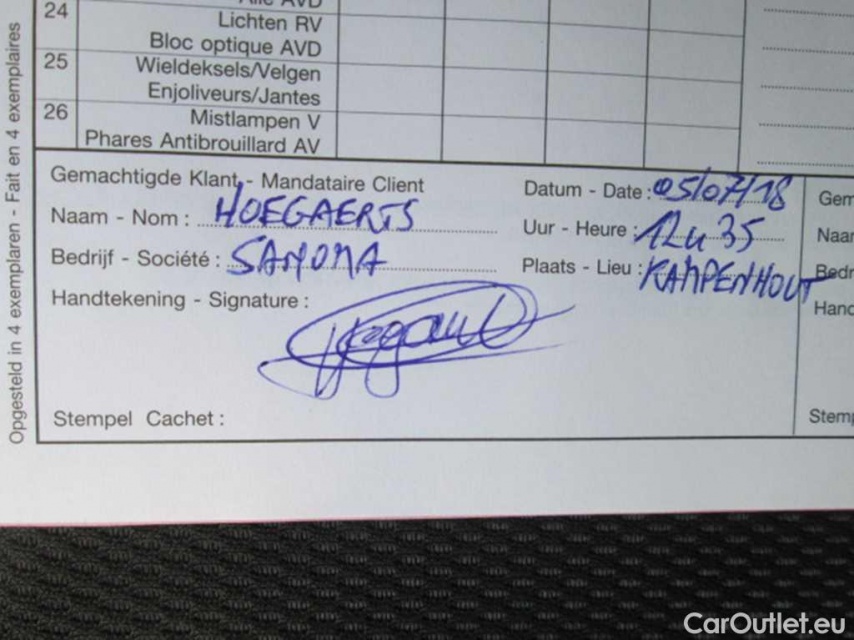 24
Lichten RV
Bloc optique AVD
25 Wieldeksels/Velgen
Enjoliveurs/Jantes
26 Mistlampen V
Phares Antibrouillard AV
Opgesteld in 4 exemplaren - Fait en 4 exemplaires
Gemachtigde Klant - Mandataire Client
Naam - Nom : HOEGAERTS
Bedrijf - Société : SANOMA
Handtekening - Signature :
Stempel Cachet :
Datum - Date : 05/07/18
Uur - Heure : 12u35
Plaats - Lieu : KAMPENHOUT
Gem
Naar
Bedr
Hand
Stemp
CarOutlet.eu